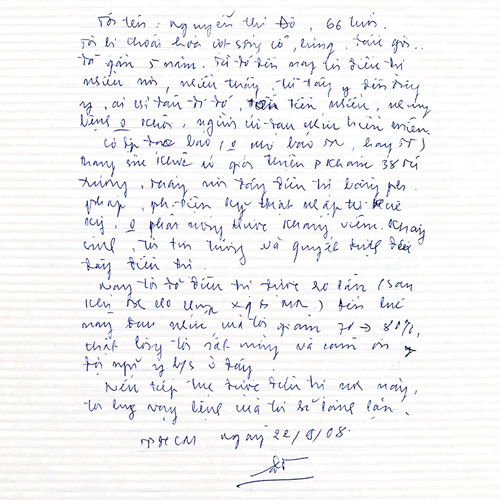 Tôi tên : nguyễn thị Đô, 66 tuổi.
Tôi bị thoái hóa cột sống cổ, lưng, gối..
đã gần 5 năm. Tôi đã đến nay tôi điều trị
nhiều nơi, nhiều thầy, từ tây y đến đông
y, ai chỉ đâu đi đó, tốn tiền nhiều, nhưng
bệnh 0 khỏi. người cứ đau nhức triền miên.
Có dịp đọc báo (0 nhớ báo SK, hay TT)
trang sức khỏe có giới thiệu P khám 38 Tú
Xương, thấy nơi đây điều trị bằng ph.
pháp, ph. tiện kỹ thuật nhập từ Hoa
Kỳ, 0 phải uống thuốc kháng viêm. kháng
sinh, tôi tin tưởng và quyết định đến
đây điều trị.
Nay tôi đã điều trị được 20 lần (sau
khi BS cho chụp X q và MR) đến lúc
này đau nhức của tôi giảm 70 → 80%,
thật lòng tôi rất mừng và cảm ơn
đội ngũ y b/s ở đây.
Nếu tiếp tục được điều trị như này,
tôi hy vọng bệnh của tôi sẽ lành lặn.
TPHCM ngày 22/8/08.